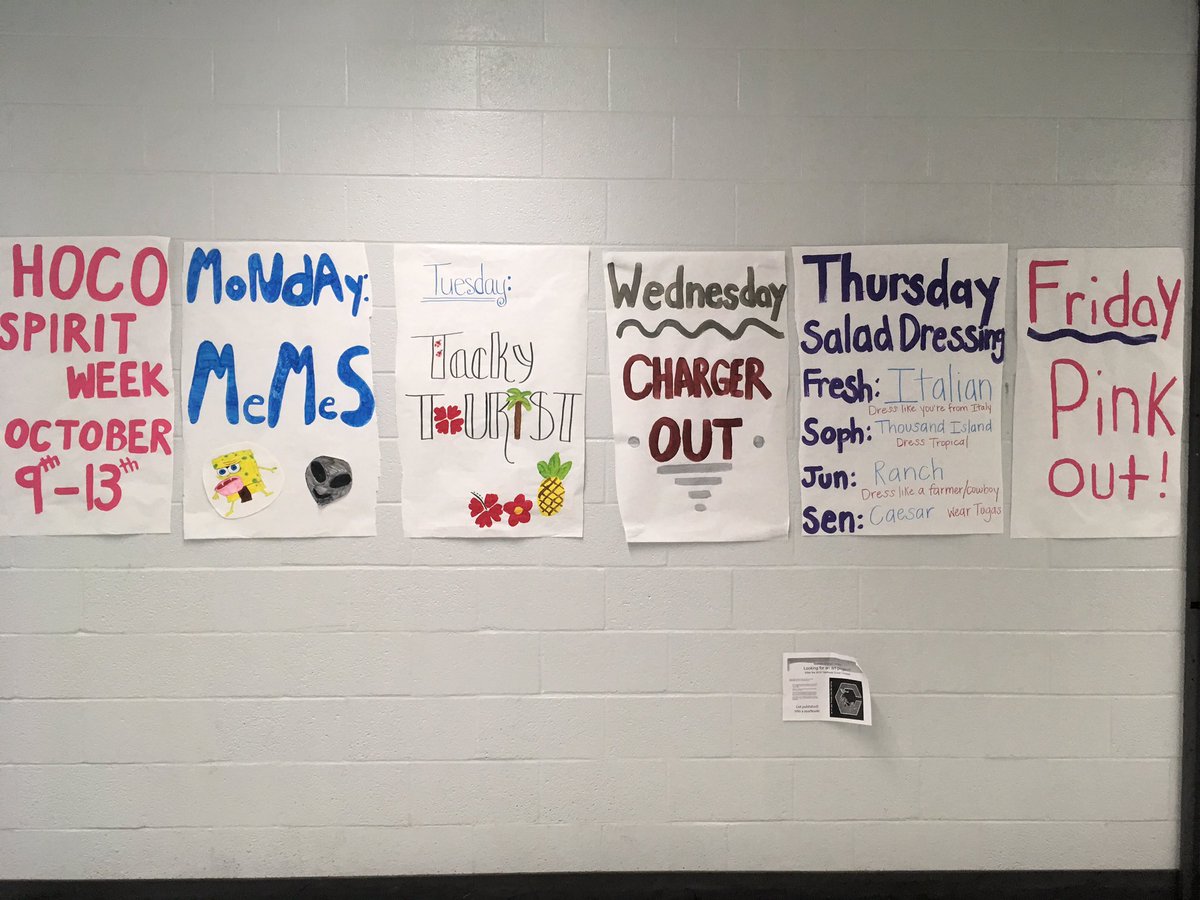 HOCO
SPIRIT
WEEK
OCTOBER
9th-13th
MoNdAy:
MeMeS
Tuesday:
Tacky
TOURIST
Wednesday
CHARGER
OUT
Thursday
Salad Dressing
Fresh: Italian
Dress like you're from Italy
Soph: Thousand Island
Dress Tropical
Jun: Ranch
Dress like a farmer/cowboy
Sen: Caesar Wear Togas
Friday
Pink
out!
Looking for an